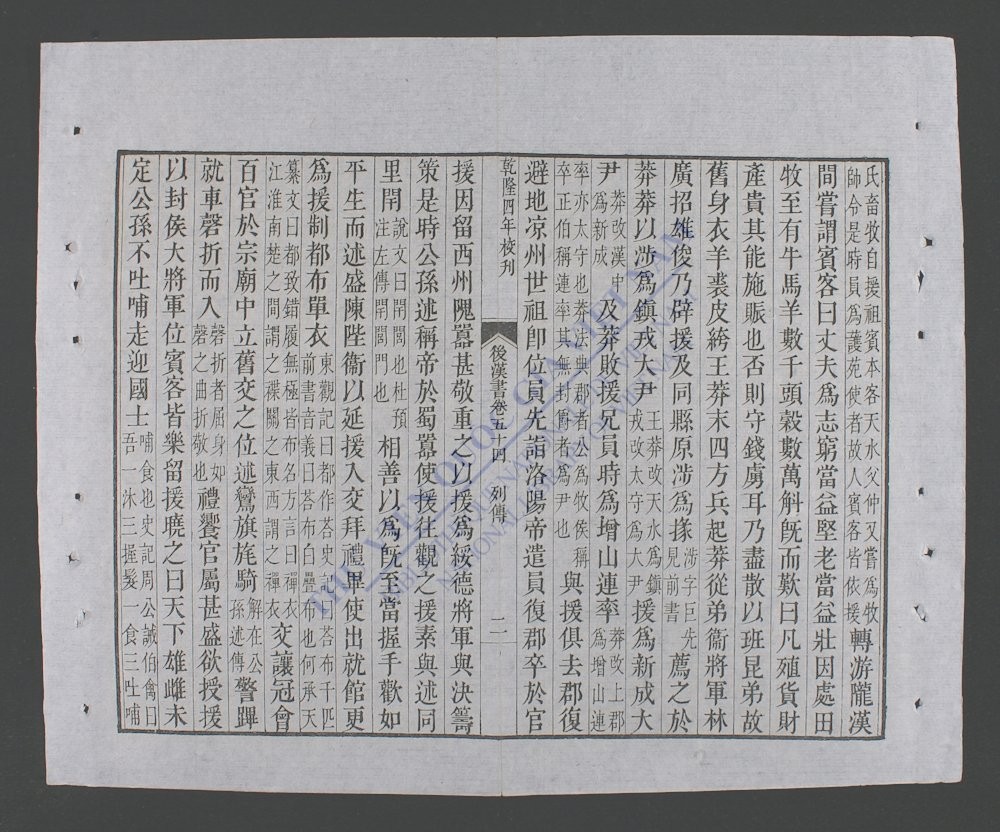 氏畜牧自援祖賓本客天水父仲又嘗爲牧
師令是時員爲護苑使者故人賓客皆依援轉游隴漢
間嘗謂賓客曰丈夫爲志窮當益堅老當益壯因處田
牧至有牛馬羊數千頭穀數萬斛旣而歎曰凡殖貨財
產貴其能施賑也否則守錢虜耳乃盡散以班昆弟故
舊身衣羊裘皮絝王莽末四方兵起莽從弟衞將軍林
廣招雄俊乃辟援及同縣原涉爲掾涉字巨先見前書薦之於
莽莽以涉爲鎮戎大尹王莽改天水爲鎮戎改太守爲大尹援爲新成大
尹莽改漢中爲新成及莽敗援兄員時爲增山連率莽改上郡爲增山連
率亦太守也莽法典郡者公爲牧侯稱卒正伯稱連率其無封爵者爲尹也與援俱去郡復
避地凉州世祖卽位員先詣洛陽帝遣員復郡卒於官
乾隆四年校刋
後漢書卷五十四 列傳 二
援因留西州隗囂甚敬重之以援爲綏德將軍與決籌
策是時公孫述稱帝於蜀囂使援往觀之援素與述同
里閈說文曰閈閭也杜預注左傳閈閎門也相善以爲旣至當握手歡如
平生而述盛陳陛衞以延援入交拜禮畢使出就館更
爲援制都布單衣東觀記曰都作荅史記曰荅布千匹前書音義曰荅布白疊布也何承天
纂文曰都致錯履無極皆布名方言曰襌衣江淮南楚之間謂之褋關之東西謂之襌衣交讓冠會
百官於宗廟中立舊交之位述鸞旗旄騎解在公孫述傳警蹕
就車磬折而入磬折者屈身如磬之曲折敬也禮饗官屬甚盛欲授援
以封侯大將軍位賓客皆樂留援曉之曰天下雄雌未
定公孫不吐哺走迎國士哺食也史記周公誡伯禽曰吾一沐三握髮一食三吐哺
THƯ VIỆN QUỐC GIA VIỆT NAM
NATIONAL LIBRARY OF VIETNAM